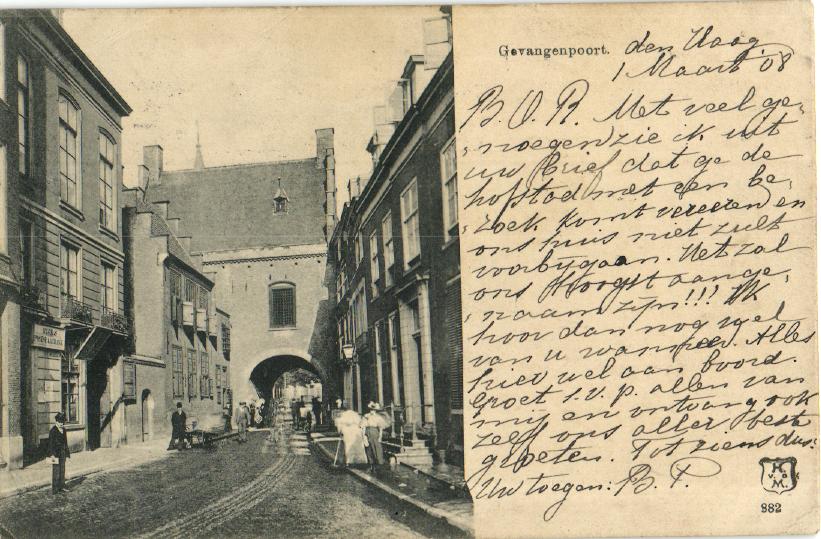 Gevangenpoort.
den Haag
1 Maart '08
B. O. R. Met veel ge-
noegen zie ik uit
uw brief dat ge de
hofstad met een be-
zoek komt vereeren en
ons huis niet zult
voorbijgaan. Het zal
ons Hoogst aange-
naam zijn!!! Ik
hoor dan nog wel
van u wanneer. Alles
hier wel aan boord.
Groet s.v.p. allen van
mij en ontvang ook
zelf ons aller beste
groeten. Tot ziens dus.
Uw toegen: B. P.
882